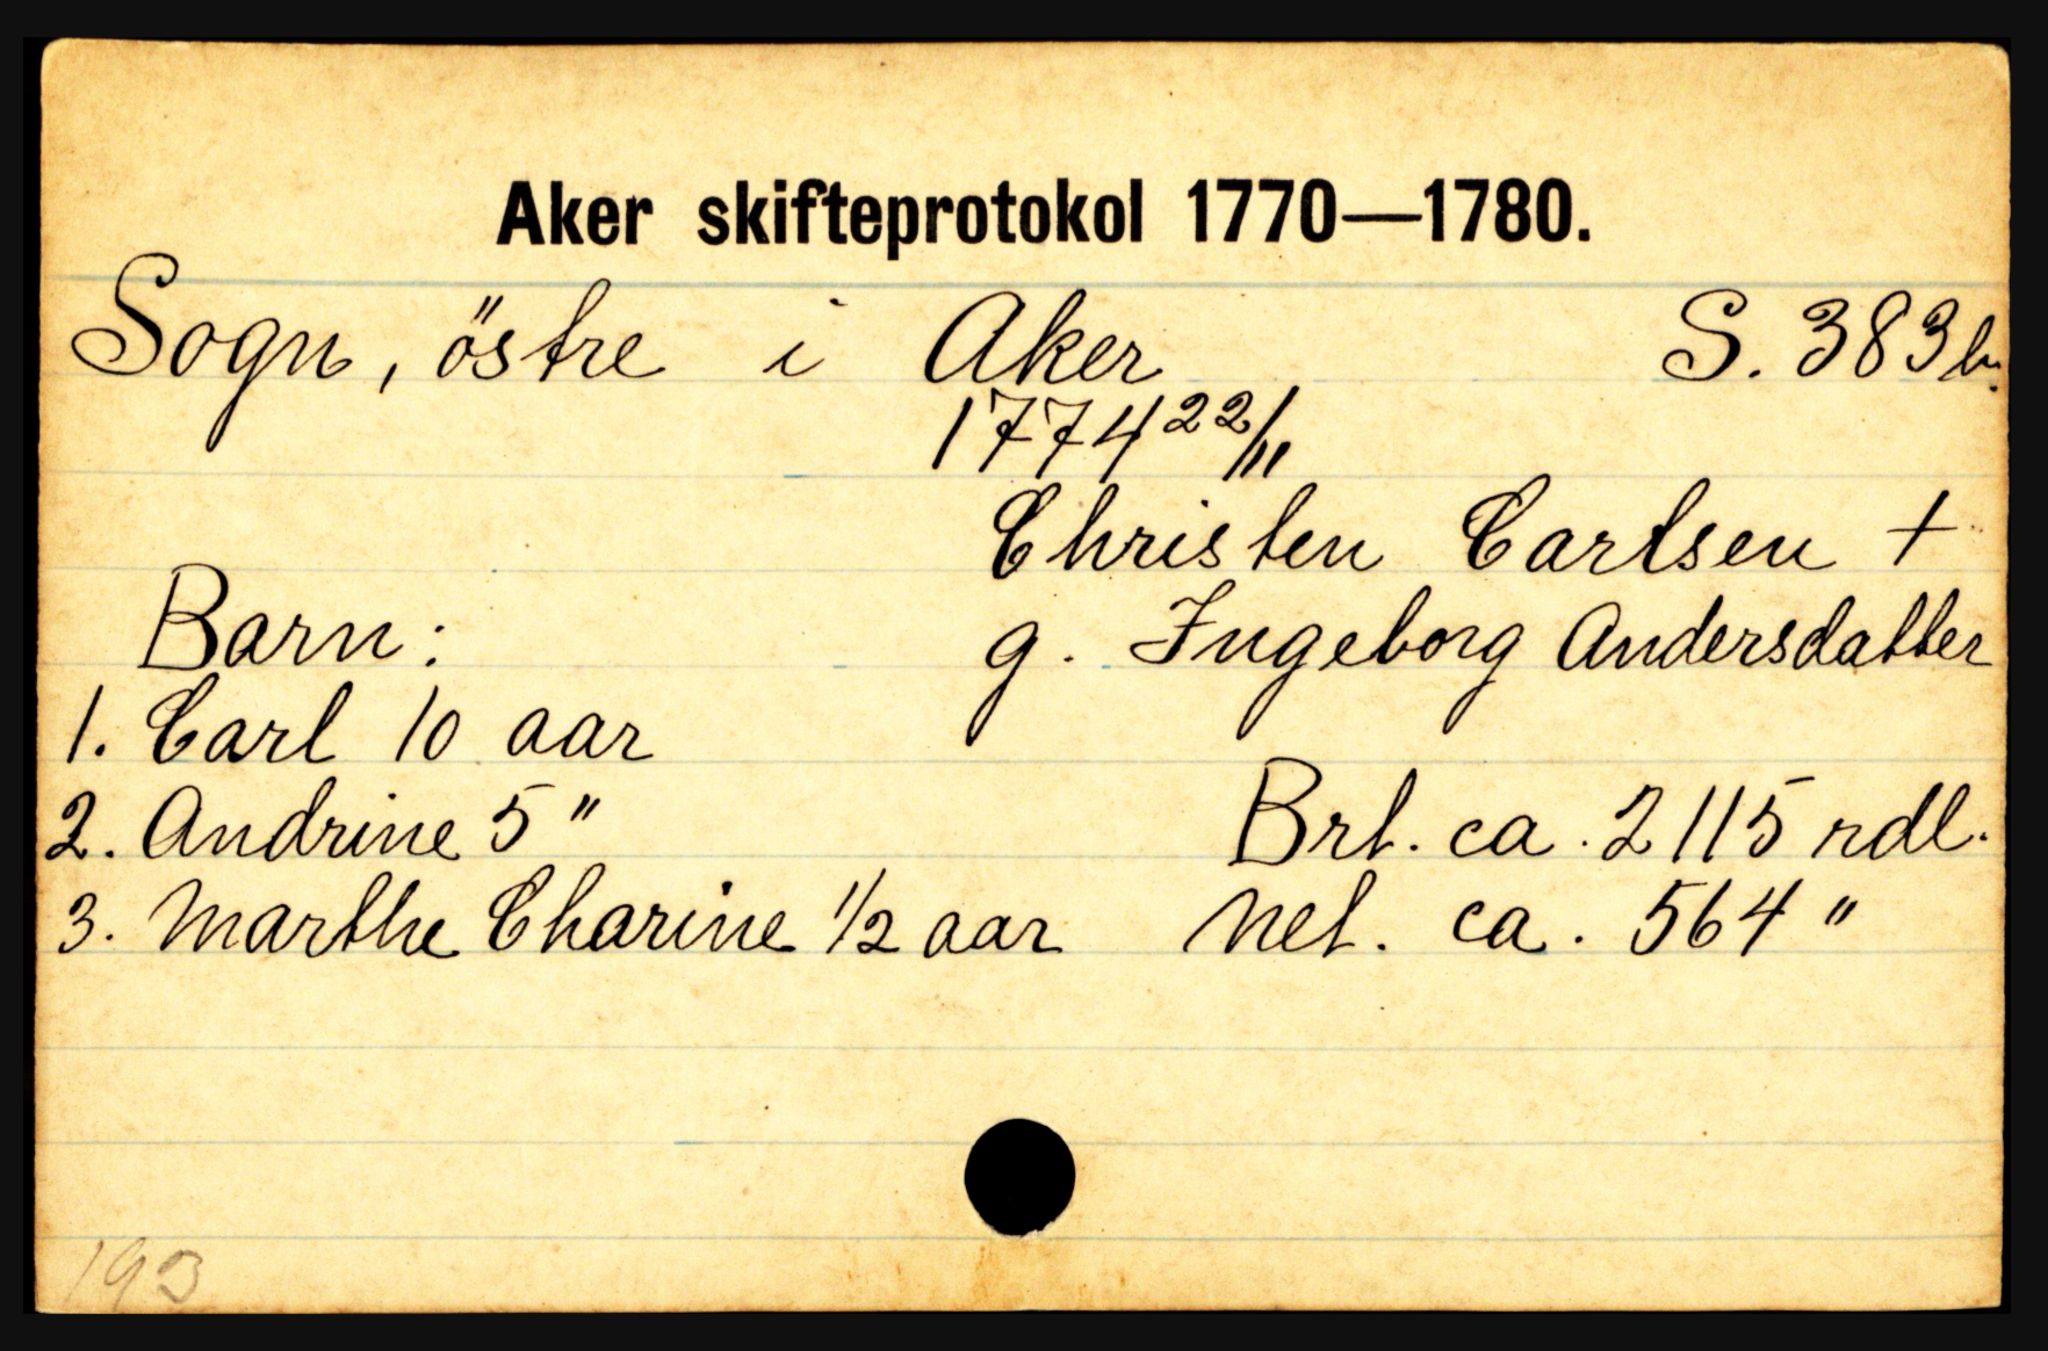 Aker skifteprotokol 1770—1780.
Sogn, östre i Aker S. 383 b.
1774 22/11
Christen Carlsen +
Barn: g. Ingeborg Andersdatter
1. Carl 10 aar
2. Andrine 5 " Brt. ca. 2115 rdl.
3. Marthe Charine 1/2 aar Net. ca. 564 "
193